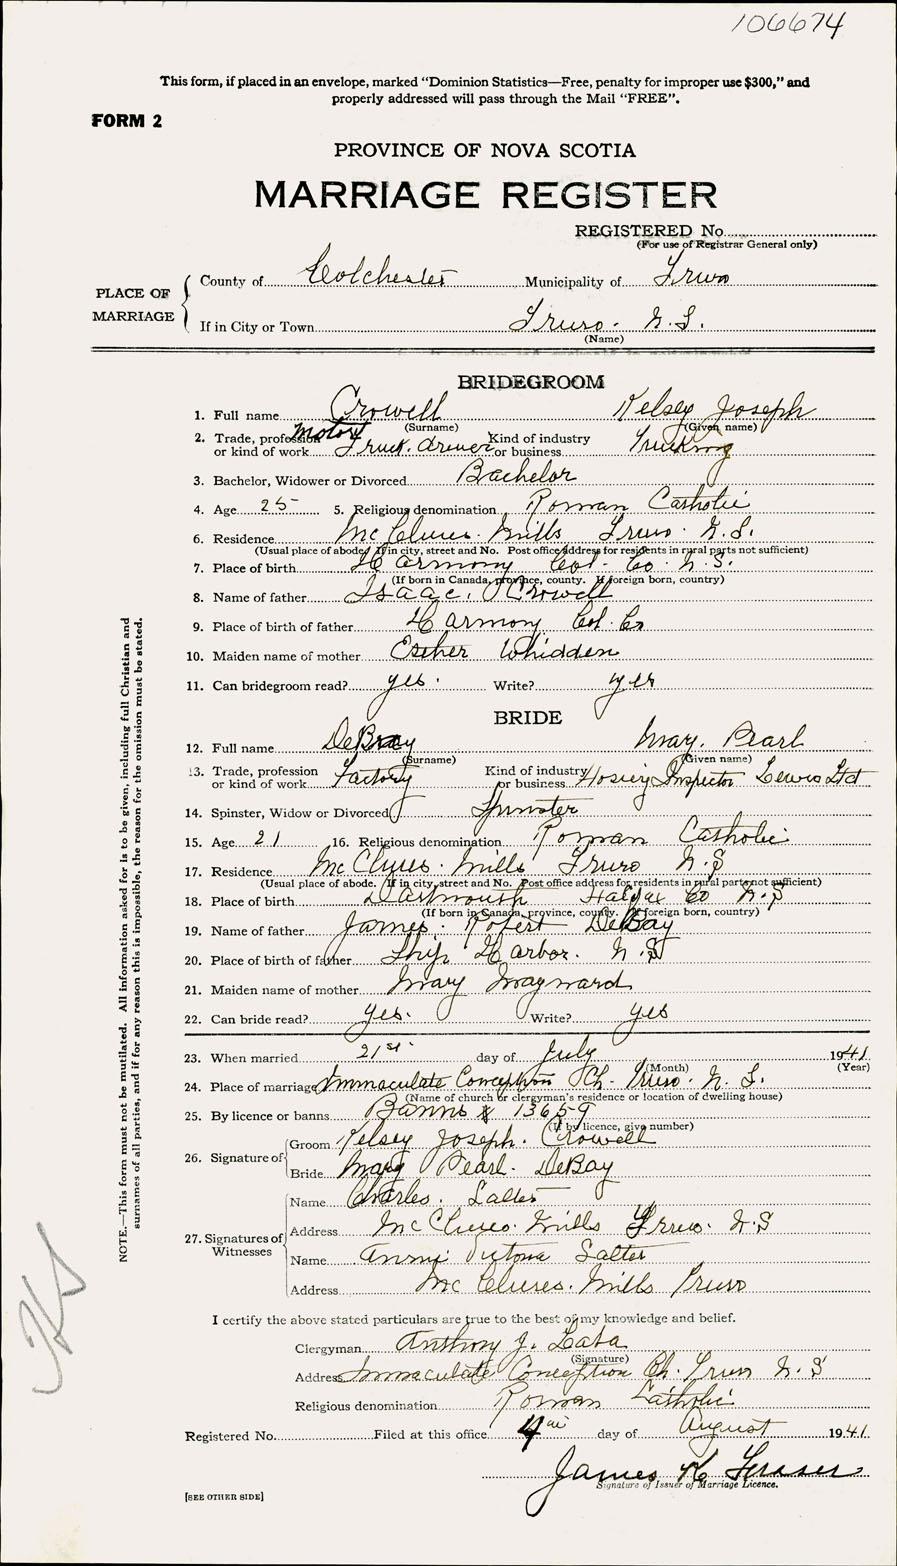 106674
This form, if placed in an envelope, marked “Dominion Statistics—Free, penalty for improper use $300,” and
properly addressed will pass through the Mail “FREE”.
FORM 2
PROVINCE OF NOVA SCOTIA
MARRIAGE REGISTER
REGISTERED No.
(For use of Registrar General only)
PLACE OF MARRIAGE
County of Colchester Municipality of Truro
If in City or Town Truro. N.S.
(Name)
BRIDEGROOM
1. Full name Crowell Kelsey Joseph
(Surname) (Given name)
2. Trade, profession or kind of work Motor Truck. driver Kind of industry or business Trucking
3. Bachelor, Widower or Divorced Bachelor
4. Age 25 5. Religious denomination Roman Catholic
6. Residence McClures. Mills Truro. N.S.
(Usual place of abode. If in city, street and No. Post office address for residents in rural parts not sufficient)
7. Place of birth Harmony Col. Co. N.S.
(If born in Canada, province, county. If foreign born, country)
8. Name of father Isaac. Crowell
9. Place of birth of father Harmony Col. Co
10. Maiden name of mother Esther Whidden
11. Can bridegroom read? yes. Write? yes
BRIDE
12. Full name DeBay Mary. Pearl
(Surname) (Given name)
13. Trade, profession or kind of work Factory Kind of industry or business Hosiery Inspector Lewis Ltd
14. Spinster, Widow or Divorced Spinster
15. Age 21 16. Religious denomination Roman Catholic
17. Residence McClures. Mills Truro N.S
(Usual place of abode. If in city, street and No. Post office address for residents in rural parts not sufficient)
18. Place of birth Dartmouth Halifax Co N.S
(If born in Canada, province, county. If foreign born, country)
19. Name of father James. Robert DeBay
20. Place of birth of father Ship Harbor. N.S
21. Maiden name of mother Mary Maynard
22. Can bride read? yes. Write? yes
23. When married 21st day of July 1941
(Month) (Year)
24. Place of marriage Immaculate Conception Ch. Truro. N.S.
(Name of church or clergyman's residence or location of dwelling house)
25. By licence or banns Banns & 13659
(If by licence, give number)
26. Signature of
Groom Kelsey Joseph. Crowell
Bride Mary Pearl. DeBay
27. Signatures of Witnesses
Name Charles. Salter
Address McClures. Mills Truro. N.S
Name Victoria Salter
Address McClures. Mills Truro
I certify the above stated particulars are true to the best of my knowledge and belief.
Clergyman Anthony J.
(Signature)
Address Immaculate Conception Ch. Truro N.S
Religious denomination Roman Catholic
Registered No. Filed at this office 4th day of August 1941
James K Fraser
Signature of Issuer of Marriage Licence.
[SEE OTHER SIDE]
NOTE.—This form must not be mutilated. All information asked for is to be given, including full Christian and
surnames of all parties, and if for any reason this is impossible, the reason for the omission must be stated.